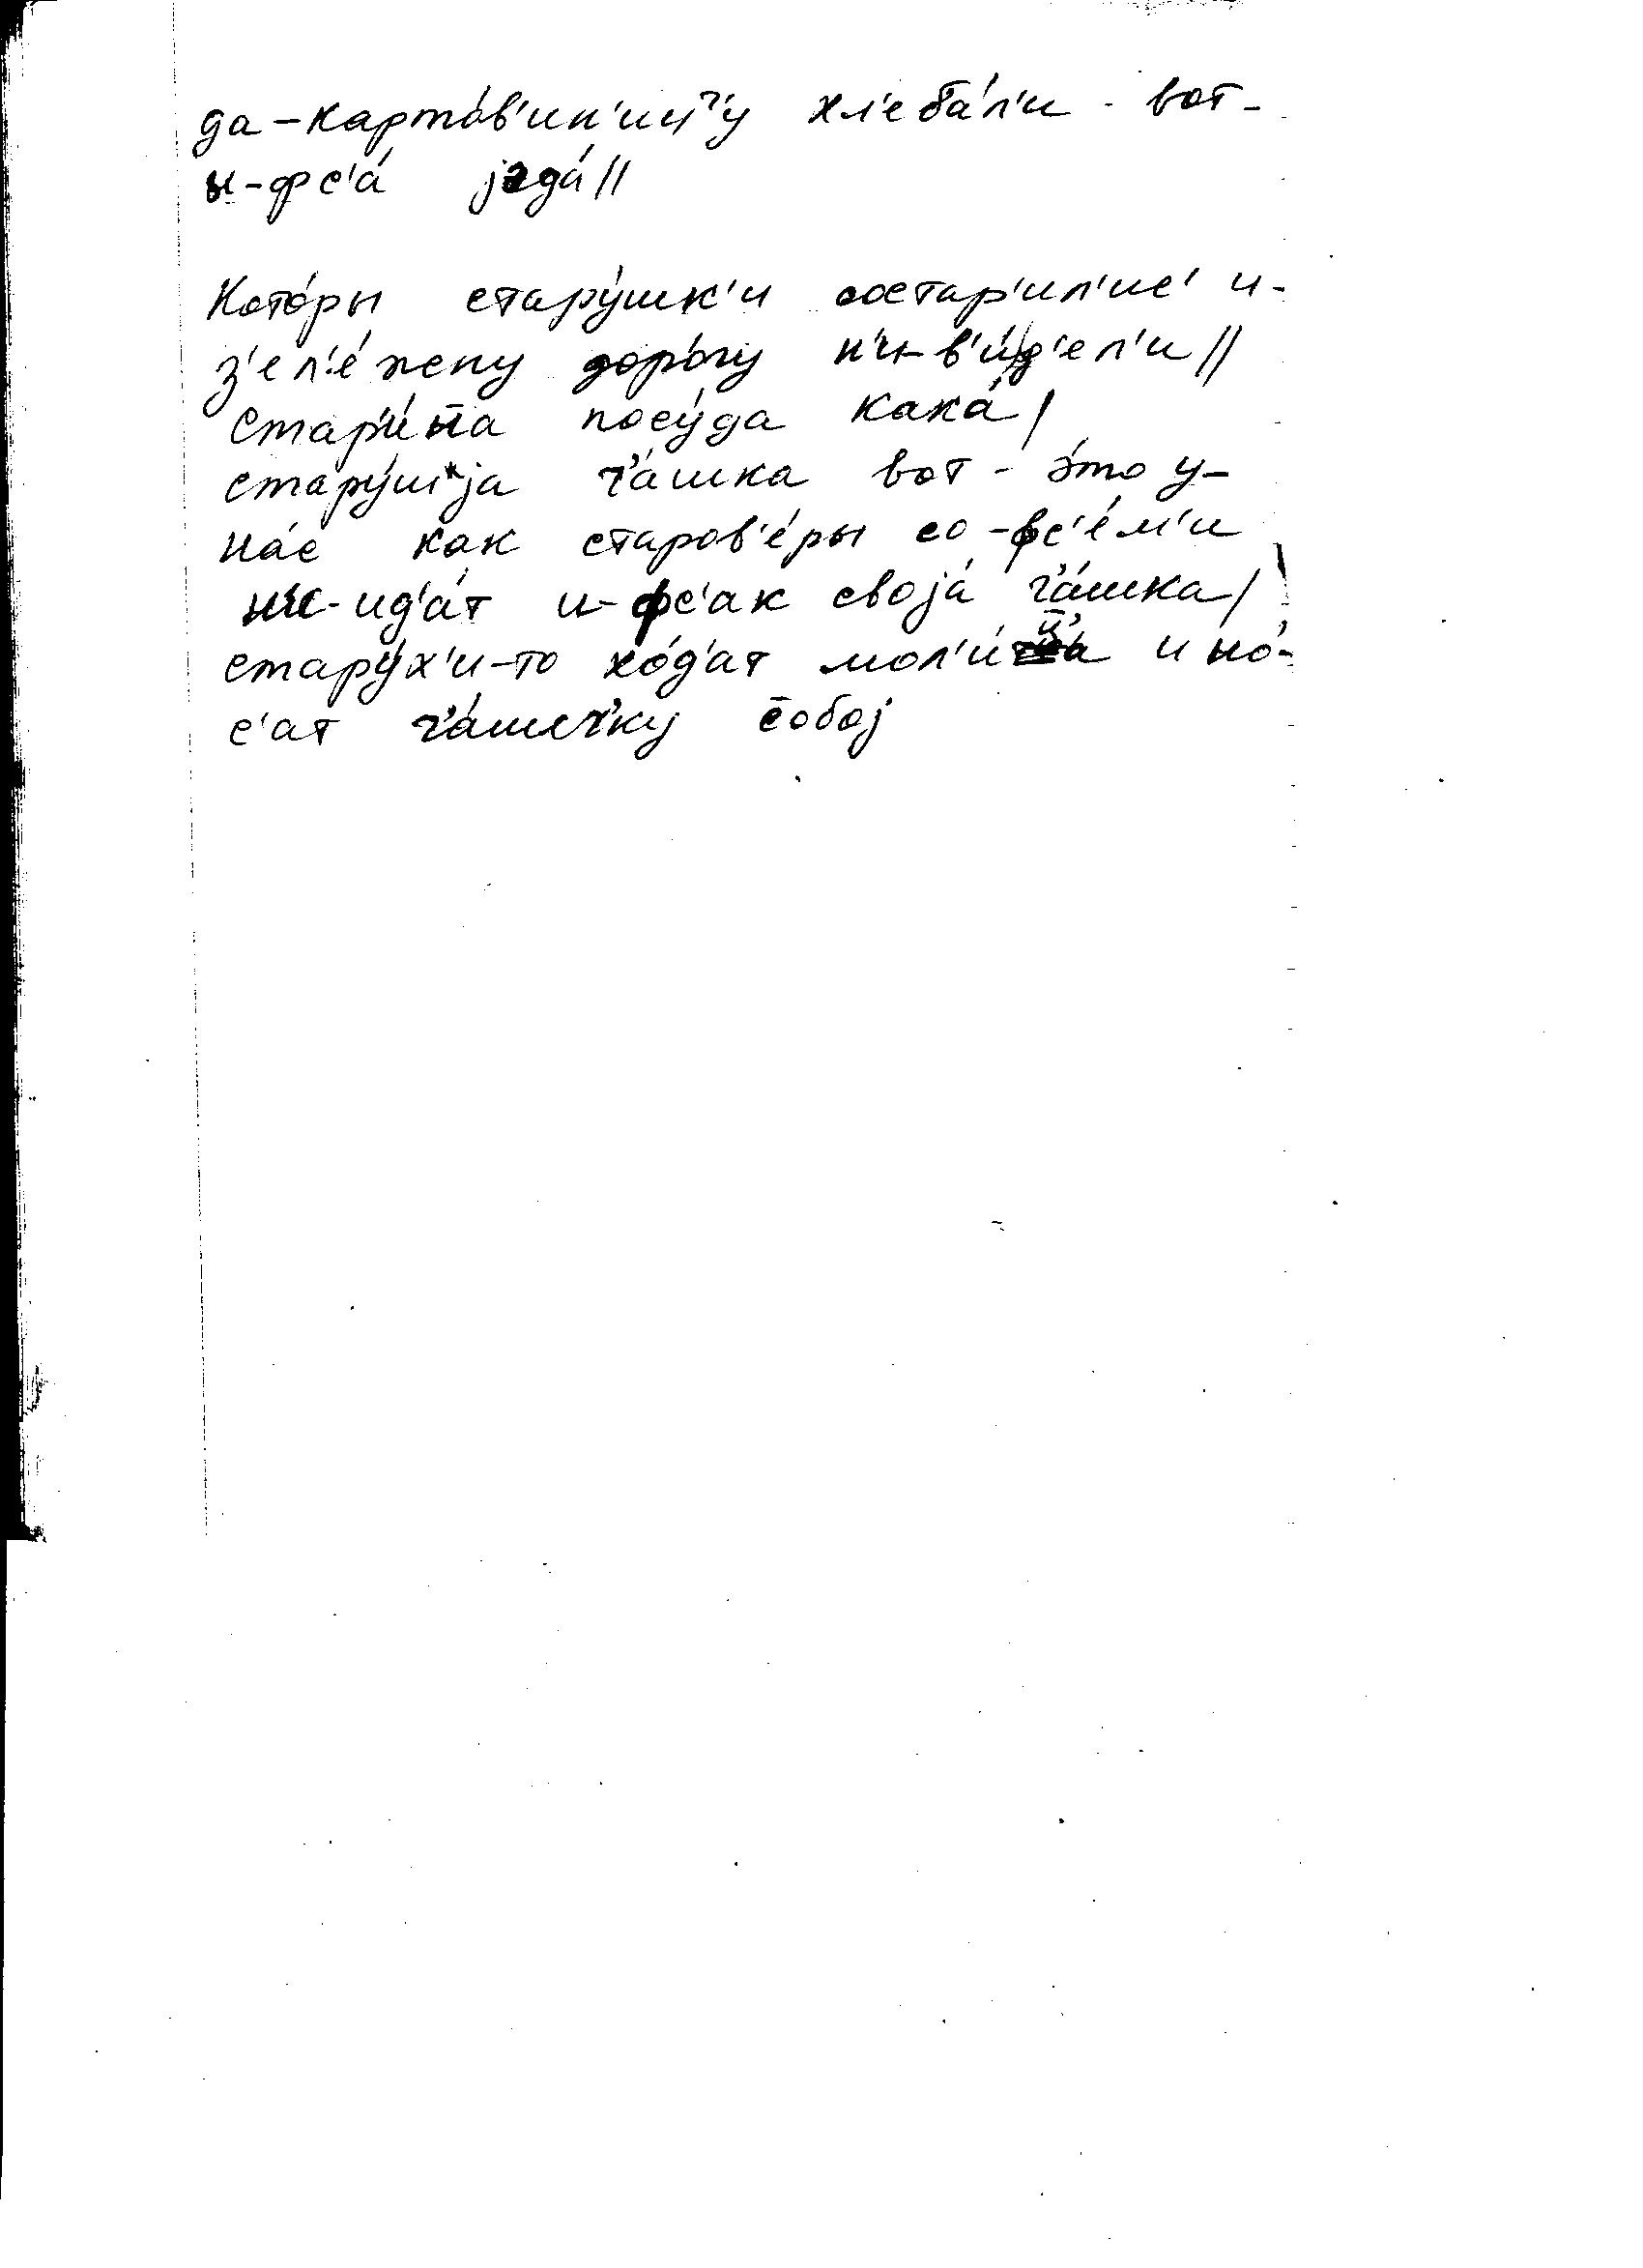 да-карто́в'ин'иц̄'у хл'еба́л'и - вот-
ы-фс'а́ јэда́//
Кото́ры стару́шк'и состар'ил'ис' и-
з'ел'е́жену доро́гу н'и-в'и́д'ел'и//
стар'и́н̄а посу́да кака́/
стару́шја ч'а́шка вот - э́то у-
на́с как старов'е́ры со-фс'е́м'и
н'и-ид'а́т и-фс'ак својá ч'а́шка/
стару́х'и-то хо́д'ат мол'и́ц̄'а и но́-
с'ат ч'а́шеч'ку с̄обој